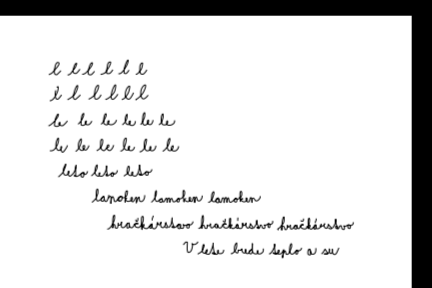 l l l l l l
l l l l l l
le le le le le le
le le le le le le
leto leto leto
lamohen lamohen lamohen
hračkárstvo hračkárstvo hračkárstvo
V lete bude teplo a su